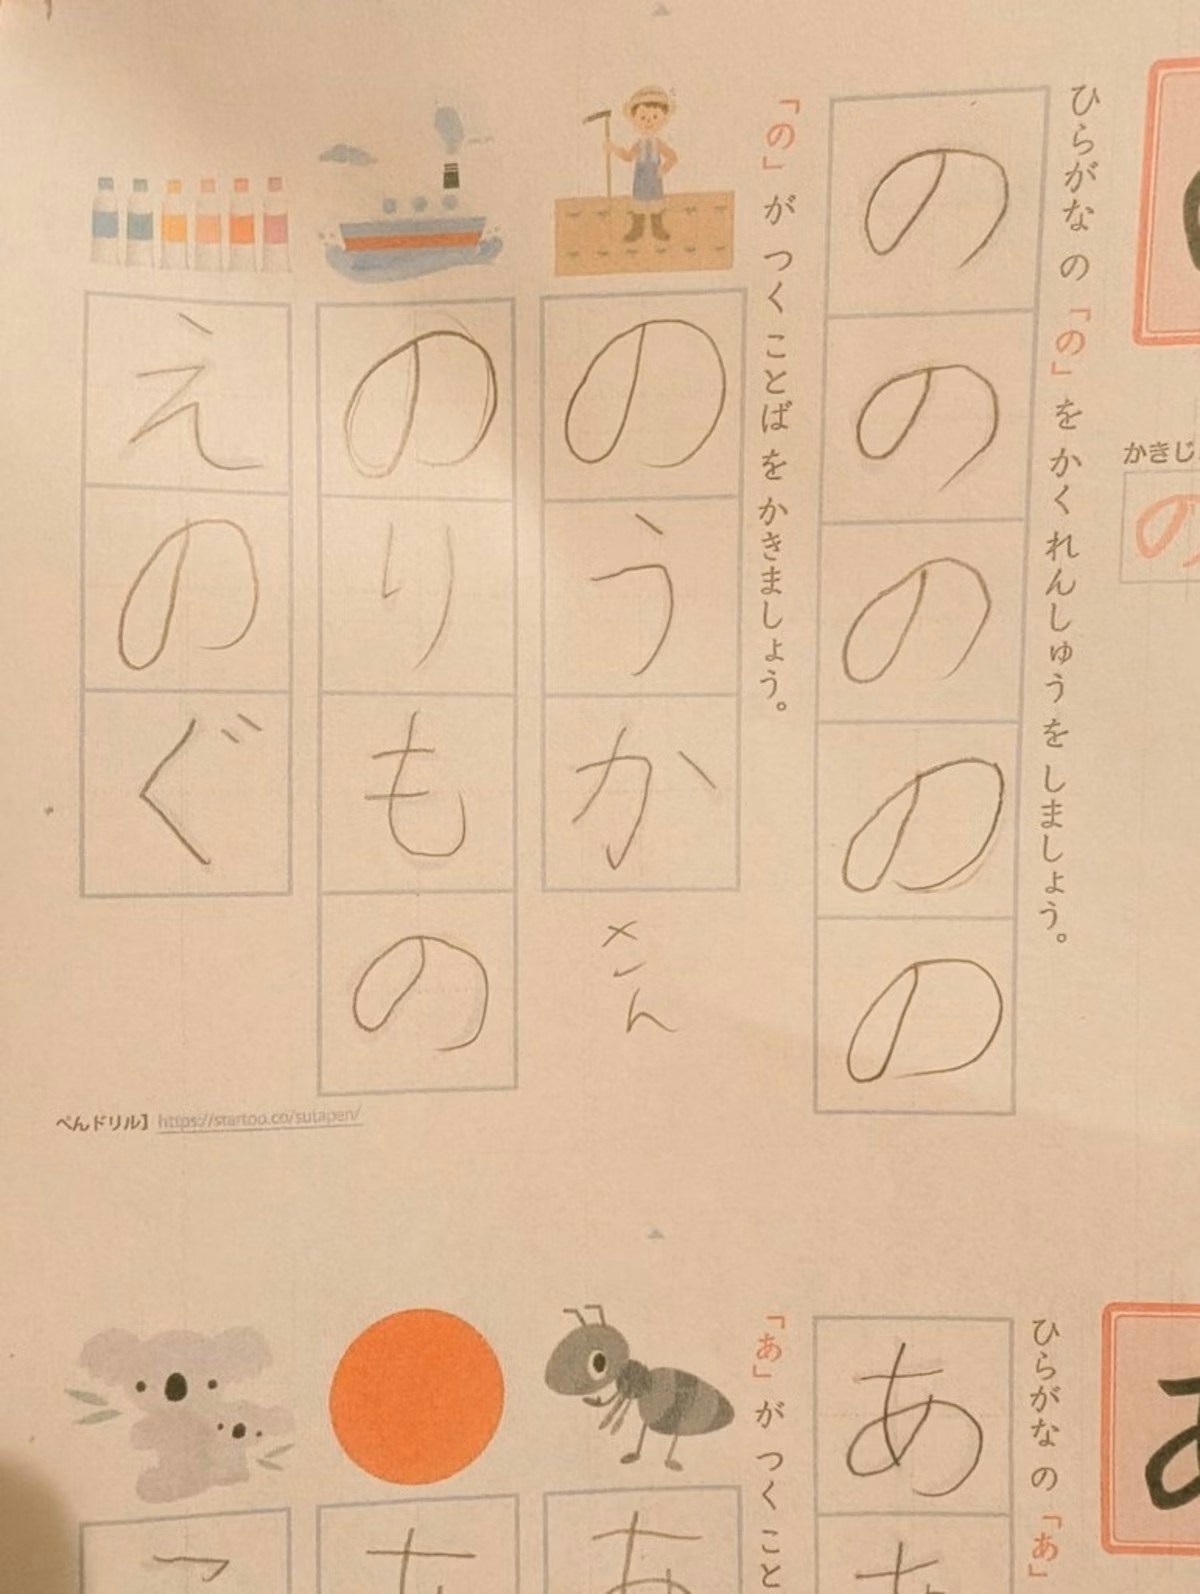 ひらがな の 「の」 を かく れんしゅう を しましょう。
かきじ
の
の
の
の
の
の
「の」 が つく ことば を かきましょう。
のうか
さん
のりもの
えのぐ
ぺんドリル】 https://startoo.co/sutapen/
あ
ひらがな の 「あ」
あ
「あ」 が つく こと